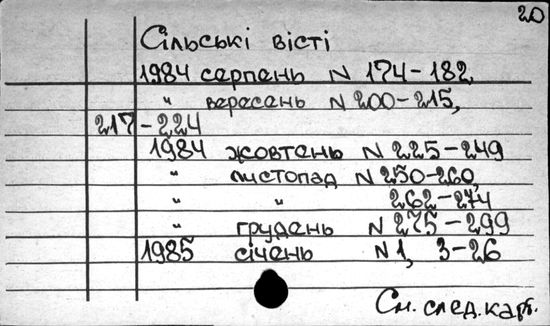 20
Сільські вісті
1984 серпень N 174-182,
" вересень N 200-215,
217-224
1984 жовтень N 225-249
" листопад N 250-260,
" " 262-274
" грудень N 275-299
1985 січень N 1, 3-26
См. след. карт.